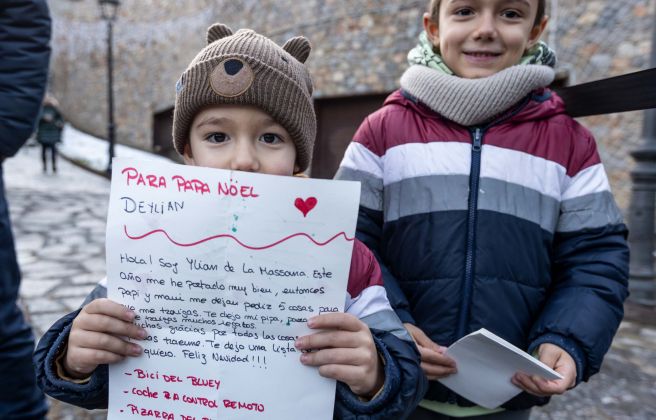 PARA PAPA NÖEL
DEYLIAN
Hola! Soy Ylian de La Massana. Este
Año me he portado muy bien, entonces
papi y mami me dejan pedir 5 cosas para
que me traigas. Te dejo mi pipa, para
me traigas muchos regalos
Muchas gracias por todas las cosas
traerme. Te dejo una lista
quiero. Feliz Navidad!!!
- BICI DEL BLUEY
- COCHE A CONTROL REMOTO
- PIZARRA DEL